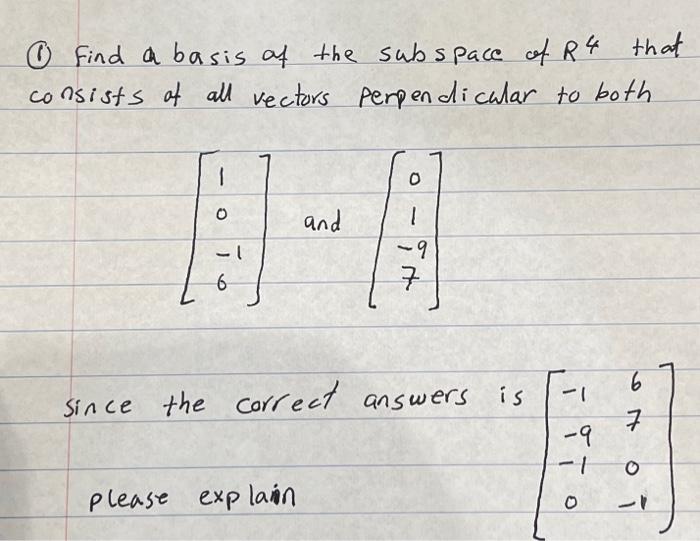 ① Find a basis of the subspace of R4 that
consists of all vectors perpendicular to both
1 0
0 and 1
-1 -9
6 7
since the correct answers is -1 6
-9 7
-1 0
please explain 0 -1